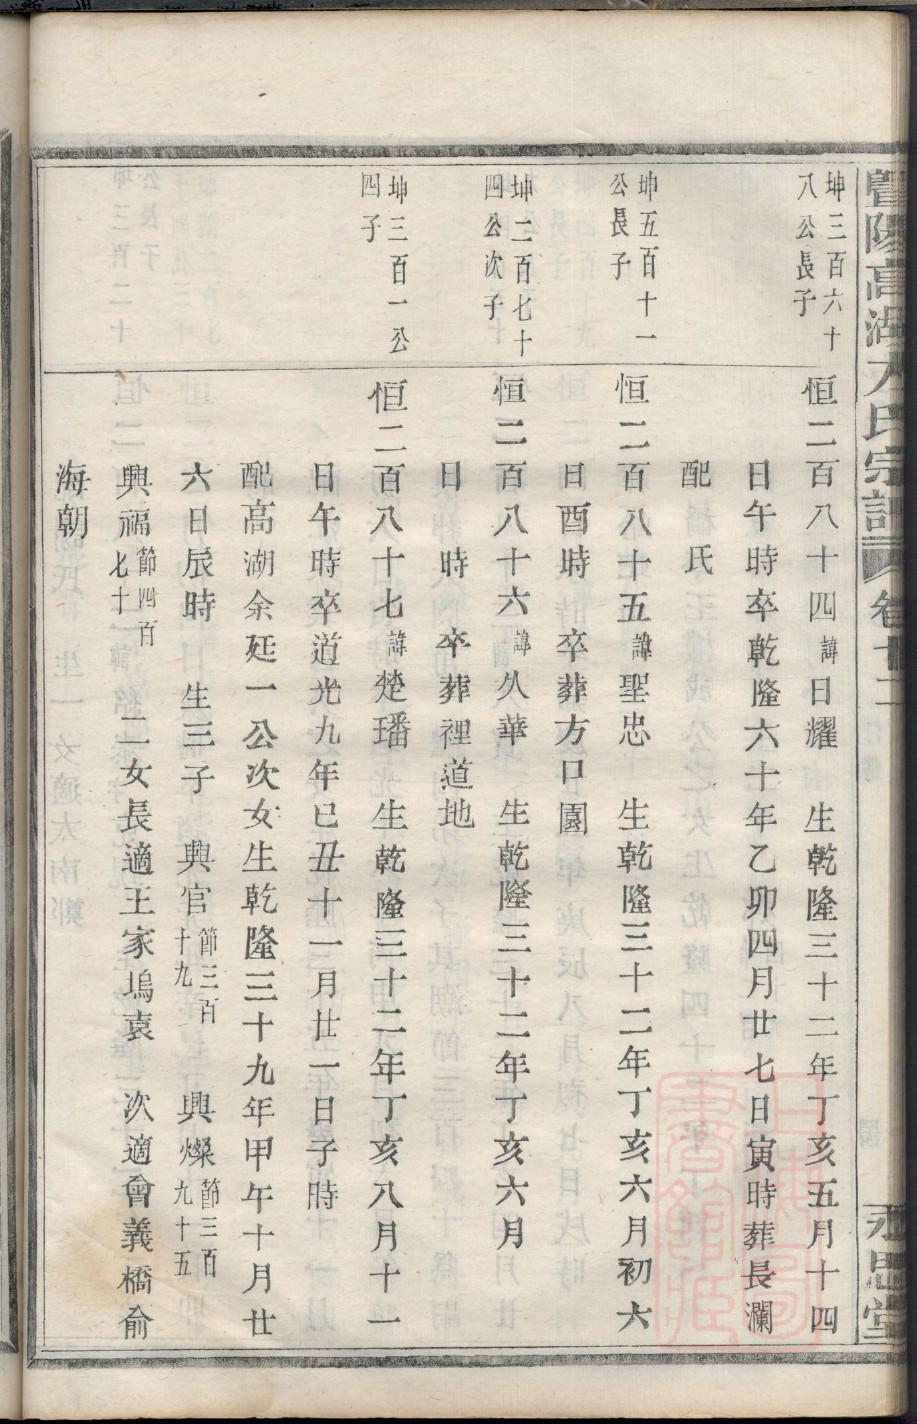 暨陽高湖方氏宗譜 卷十二 永思堂
坤三百六十
八公長子
恒二百八十四諱日耀 生乾隆三十二年丁亥五月十四
日午時卒乾隆六十年乙卯四月廿七日寅時葬長瀾
配氏
坤五百十一
公長子
恒二百八十五諱聖忠 生乾隆三十二年丁亥六月初六
日酉時 卒葬方口園
坤二百七十
四公次子
恒二百八十六諱久華 生乾隆三十二年丁亥六月
日 時 卒葬裡道地
坤三百一公
四子
恒二百八十七諱楚璠 生乾隆三十二年丁亥八月十一
日午時卒道光九年已丑十一月廿一日子時
配高湖余延一公次女生乾隆三十九年甲午十月廿
六日辰時 生三子 興官節三百十九 興燦節三百九十五
興福節四百七十 二女長適王家塢袁 次適會義橋俞
海朝